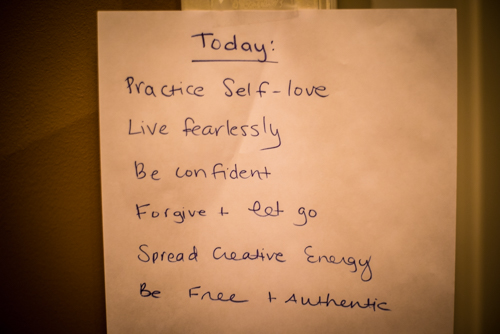 Today:
Practice Self-love
Live fearlessly
Be confident
Forgive + let go
Spread Creative Energy
Be Free + Authentic